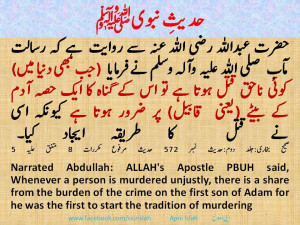 حدیثِ نبوی ﷺ
حضرت عبداللہ رضی اللہ عنہ سے روایت ہے کہ رسالت
مآب صلی اللہ علیہ وآلہ وسلم نے فرمایا (جب بھی دنیا میں)
کوئی ناحق قتل ہوتا ہے تو اس کے گناہ کا ایک حصہ آدم
کے بیٹے (یعنی قابیل) پر ضرور ہوتا ہے کیونکہ اسی
نے قتل کا طریقہ ایجاد کیا۔
صحیح بخاری: جلد دوم: حدیث نمبر 572 حدیث مرفوع مکررات 8 متفق علیہ 5
Narrated Abdullah: ALLAH's Apostle PBUH said,
Whenever a person is murdered unjustly, there is a share
from the burden of the crime on the first son of Adam for
he was the first to start the tradition of murdering